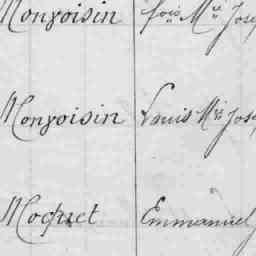 Monvoisin fois Mie Jose
Monvoisin Louis Mie Jose
Mocquet Emmanuel